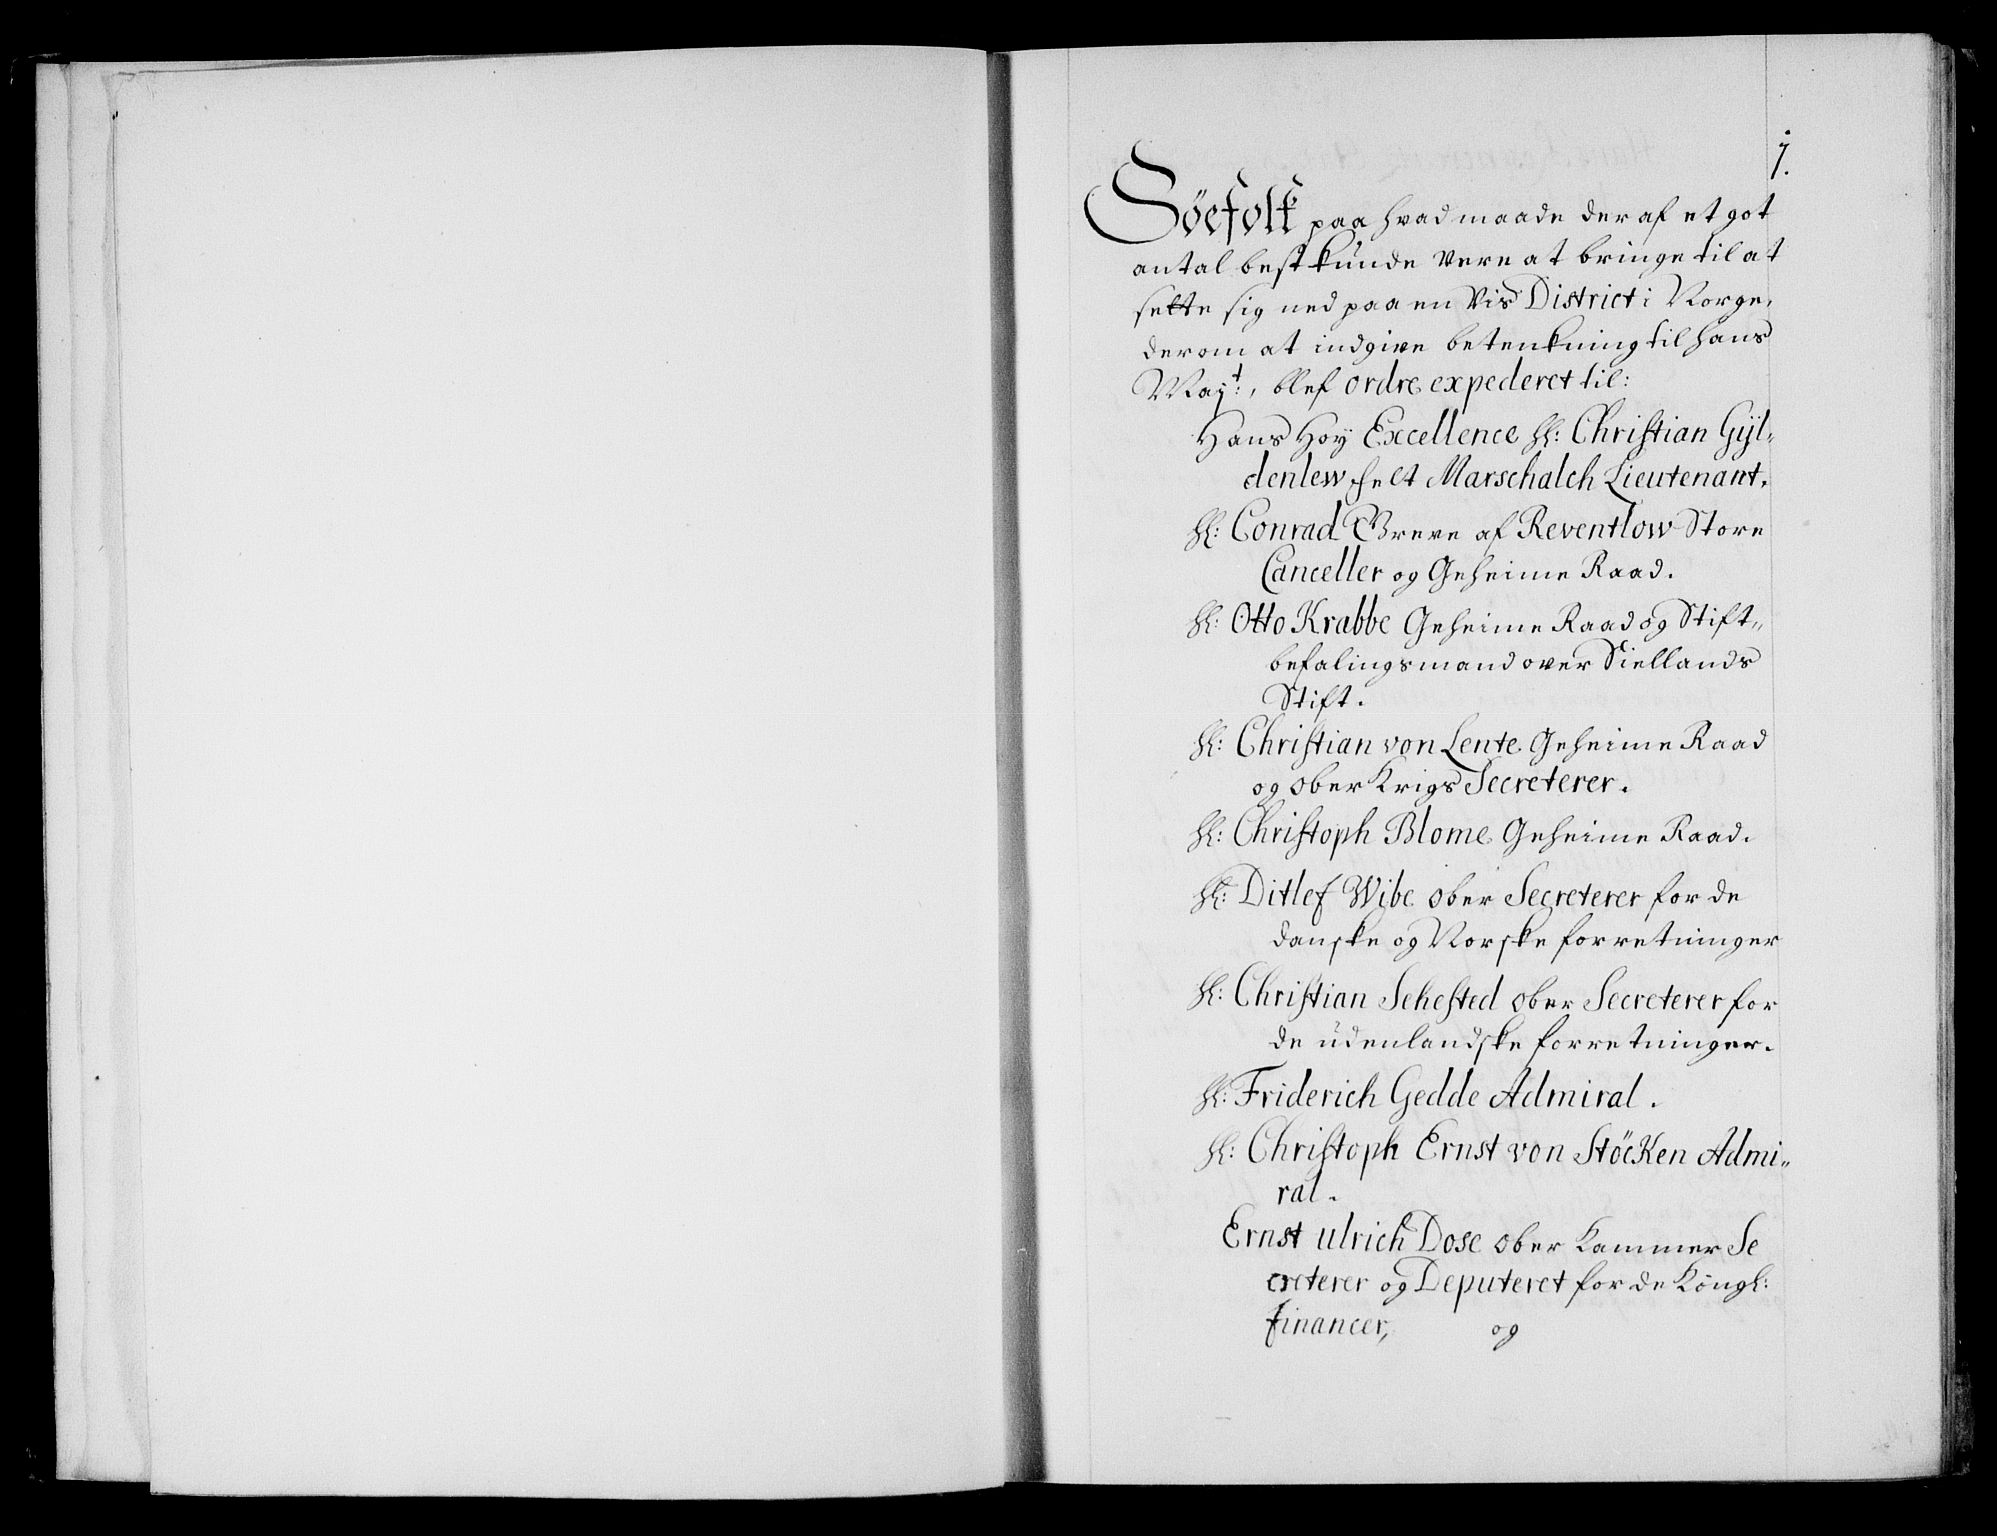 1.
Søefolk paa hvad maade der af et got
antal best kunde vere at bringe til at
sette sig ned paa en vis District i Norge,
derom at indgive betenkning til hans
May^t:, blef ordre expederet til:
Hans Høy Excellence Hr: Christian Gyl„
denlew Felt Marschalch Lieutenant.
Hr: Conrad Greve af Reventlow Store
Canceller og Geheime Raad.
Hr: Otto Krabbe Geheime Raad og Stift„
befalingsmand over Siellands
Stift.
Hr: Christian von Lente Geheime Raad
og ober Krigs Secreterer.
Hr: Christoph Blome Geheime Raad.
Hr: Ditlef Wibe ober Secreterer for de
danske og Norske forretninger
Hr: Christian Sehested ober Secreterer for
de udenlandske forretninger.
Hr: Friderich Gedde Admiral.
Hr: Christoph Ernst von Stöcken Admi„
ral.
Ernst ulrich Dose ober Kammer Se
creterer og Deputeret for de Kongl:
financer, og